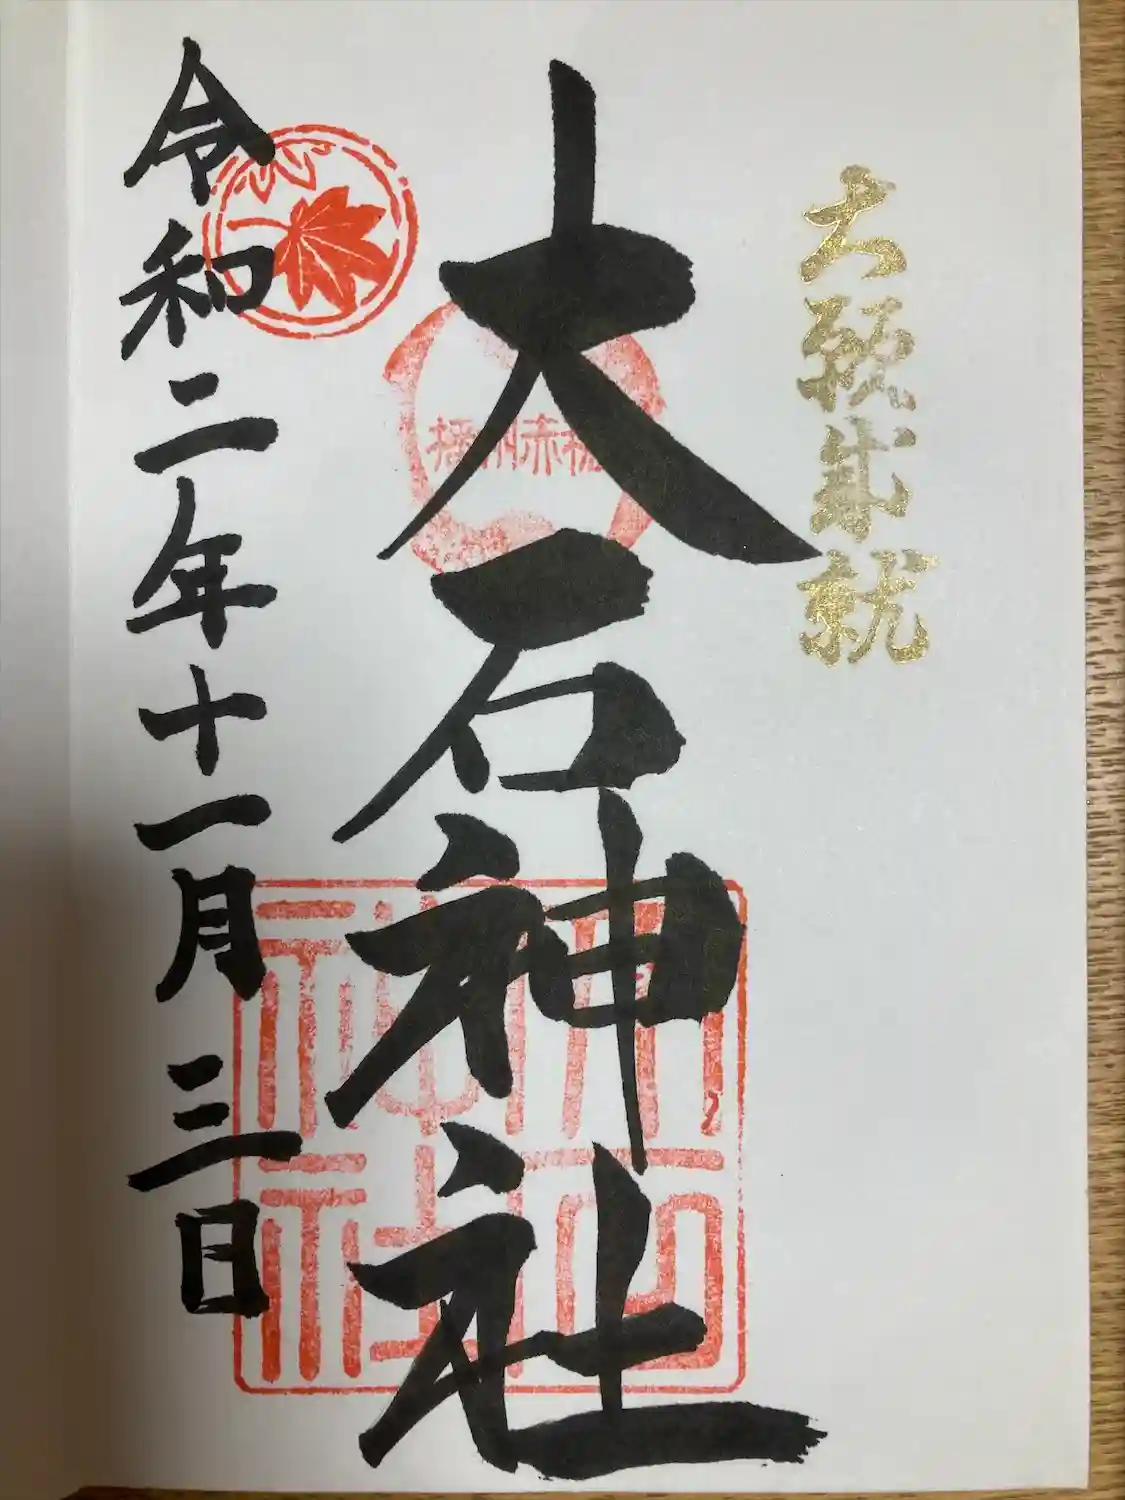 大願成就
大石神社
播州赤穂
大石神社
令和二年十一月三日